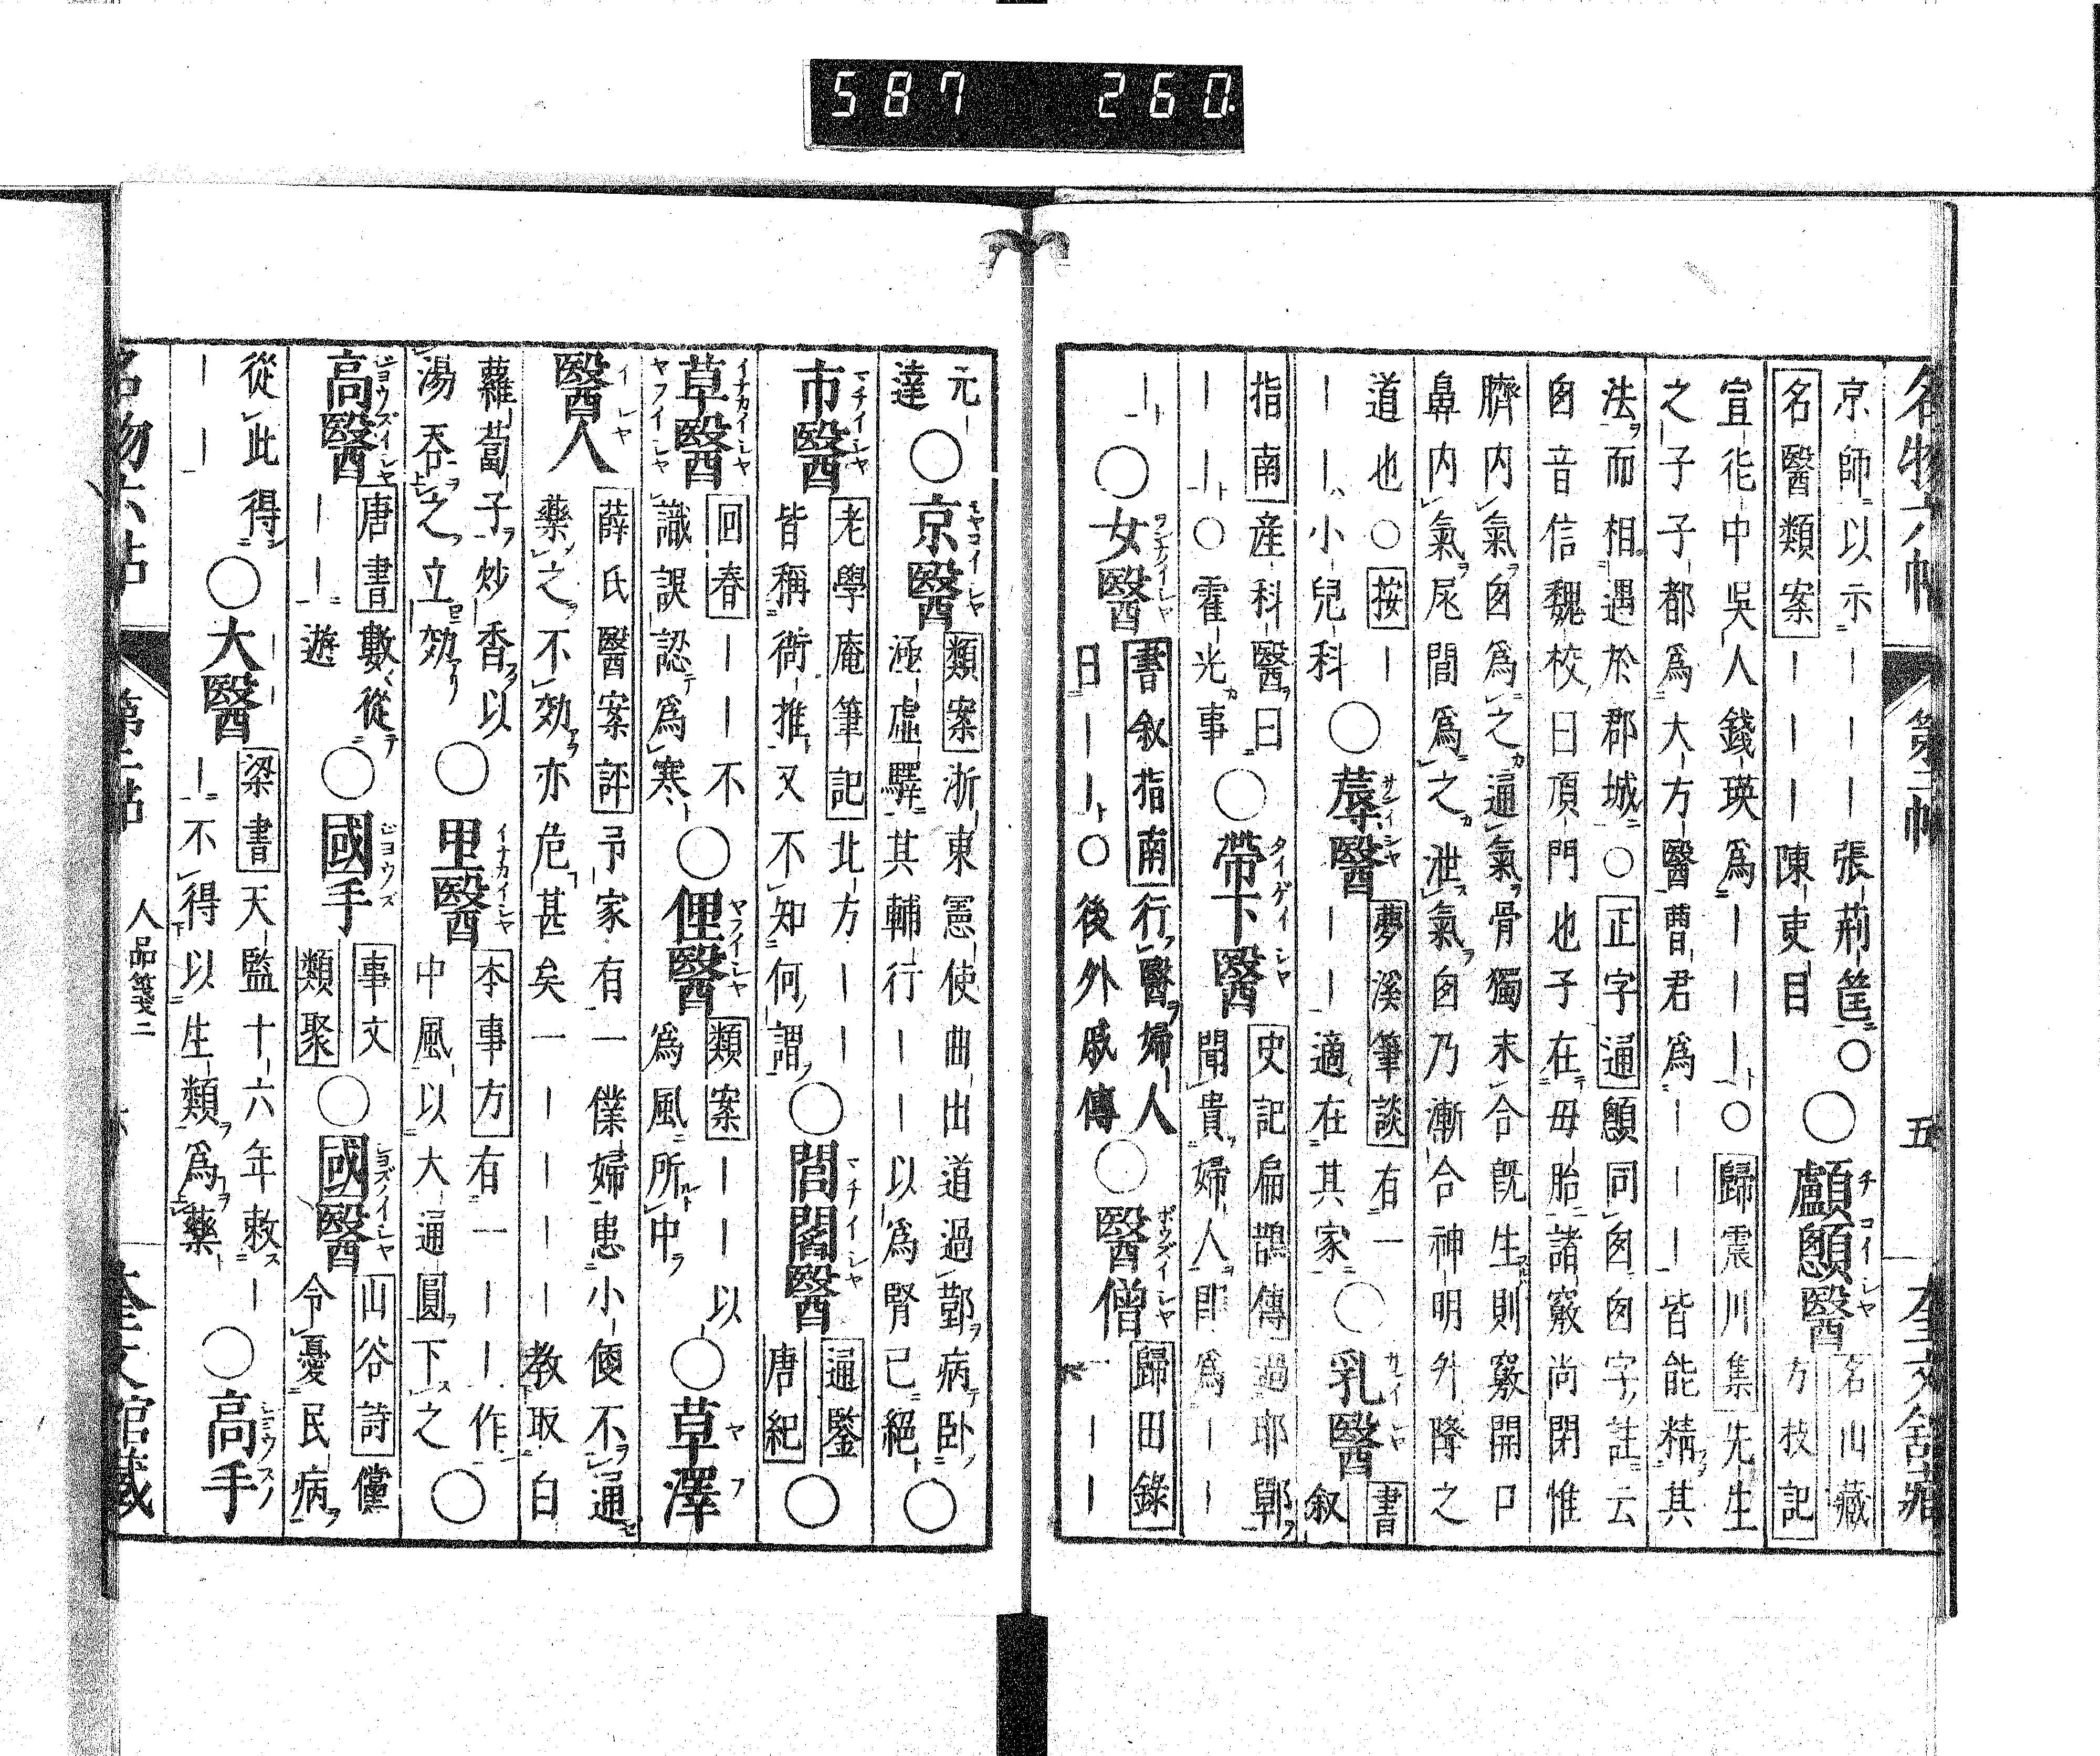 587 260.
名物六帖 第二帖 五 奎文舘藏
京師以示――――張荊筐○ ○顱顖醫 名山藏
名醫類案――――陳吏目 方技記
宜化中吳人錢瑛爲―――○歸震川集先生
之子子都爲大方醫曹君爲―――皆能精其
法而相遇於郡城○正字通顖同囟囟字註云
囟音信魏校曰頂門也子在母胎諸竅尚閉惟
臍内氣囟爲之通氣骨獨未合旣生則竅開口
鼻内氣尾閭爲之泄氣囟乃漸合神明外降之
道也○按―
――小兒科 ○蓐醫 夢溪筆談有一
――適在其家 ○乳醫 書
叙
指南產科醫曰
――○霍光事 ○帶下醫 史記扁鵲傳過邯鄲
聞貴婦人即爲――
― ○女醫 書叙指南行醫婦人
曰――○後外戚傳 ○醫僧 歸田錄
―――
元
達 ○京醫 類案浙東憲使曲出道過鄞病卧
極虛驛其輔行――以爲腎已絕 ○
市醫 老學庵筆記北方――
皆稱衙推又不知何謂 ○閭閻醫 通鑒
唐紀 ○
草醫 回春―――不
識誤認爲寒 ○俚醫 類案―――以
爲風所中 ○草澤
醫人 薛氏醫案評予家有一僕婦患小便不通
藥之不効亦危甚矣一――――教取白
蘿蔔子炒香以
湯吞之立効 ○里醫 本事方有一――作
中風以大通圓下之 ○
高醫 唐書數從
――遊 ○國手 事文
類聚 ○國醫 山谷詩儻
令憂民病
從此得
―― ○大醫 梁書天監十六年敕―
―不得以生類爲藥 ○高手
名物六帖 第二帖 人品箋二 奎文館藏